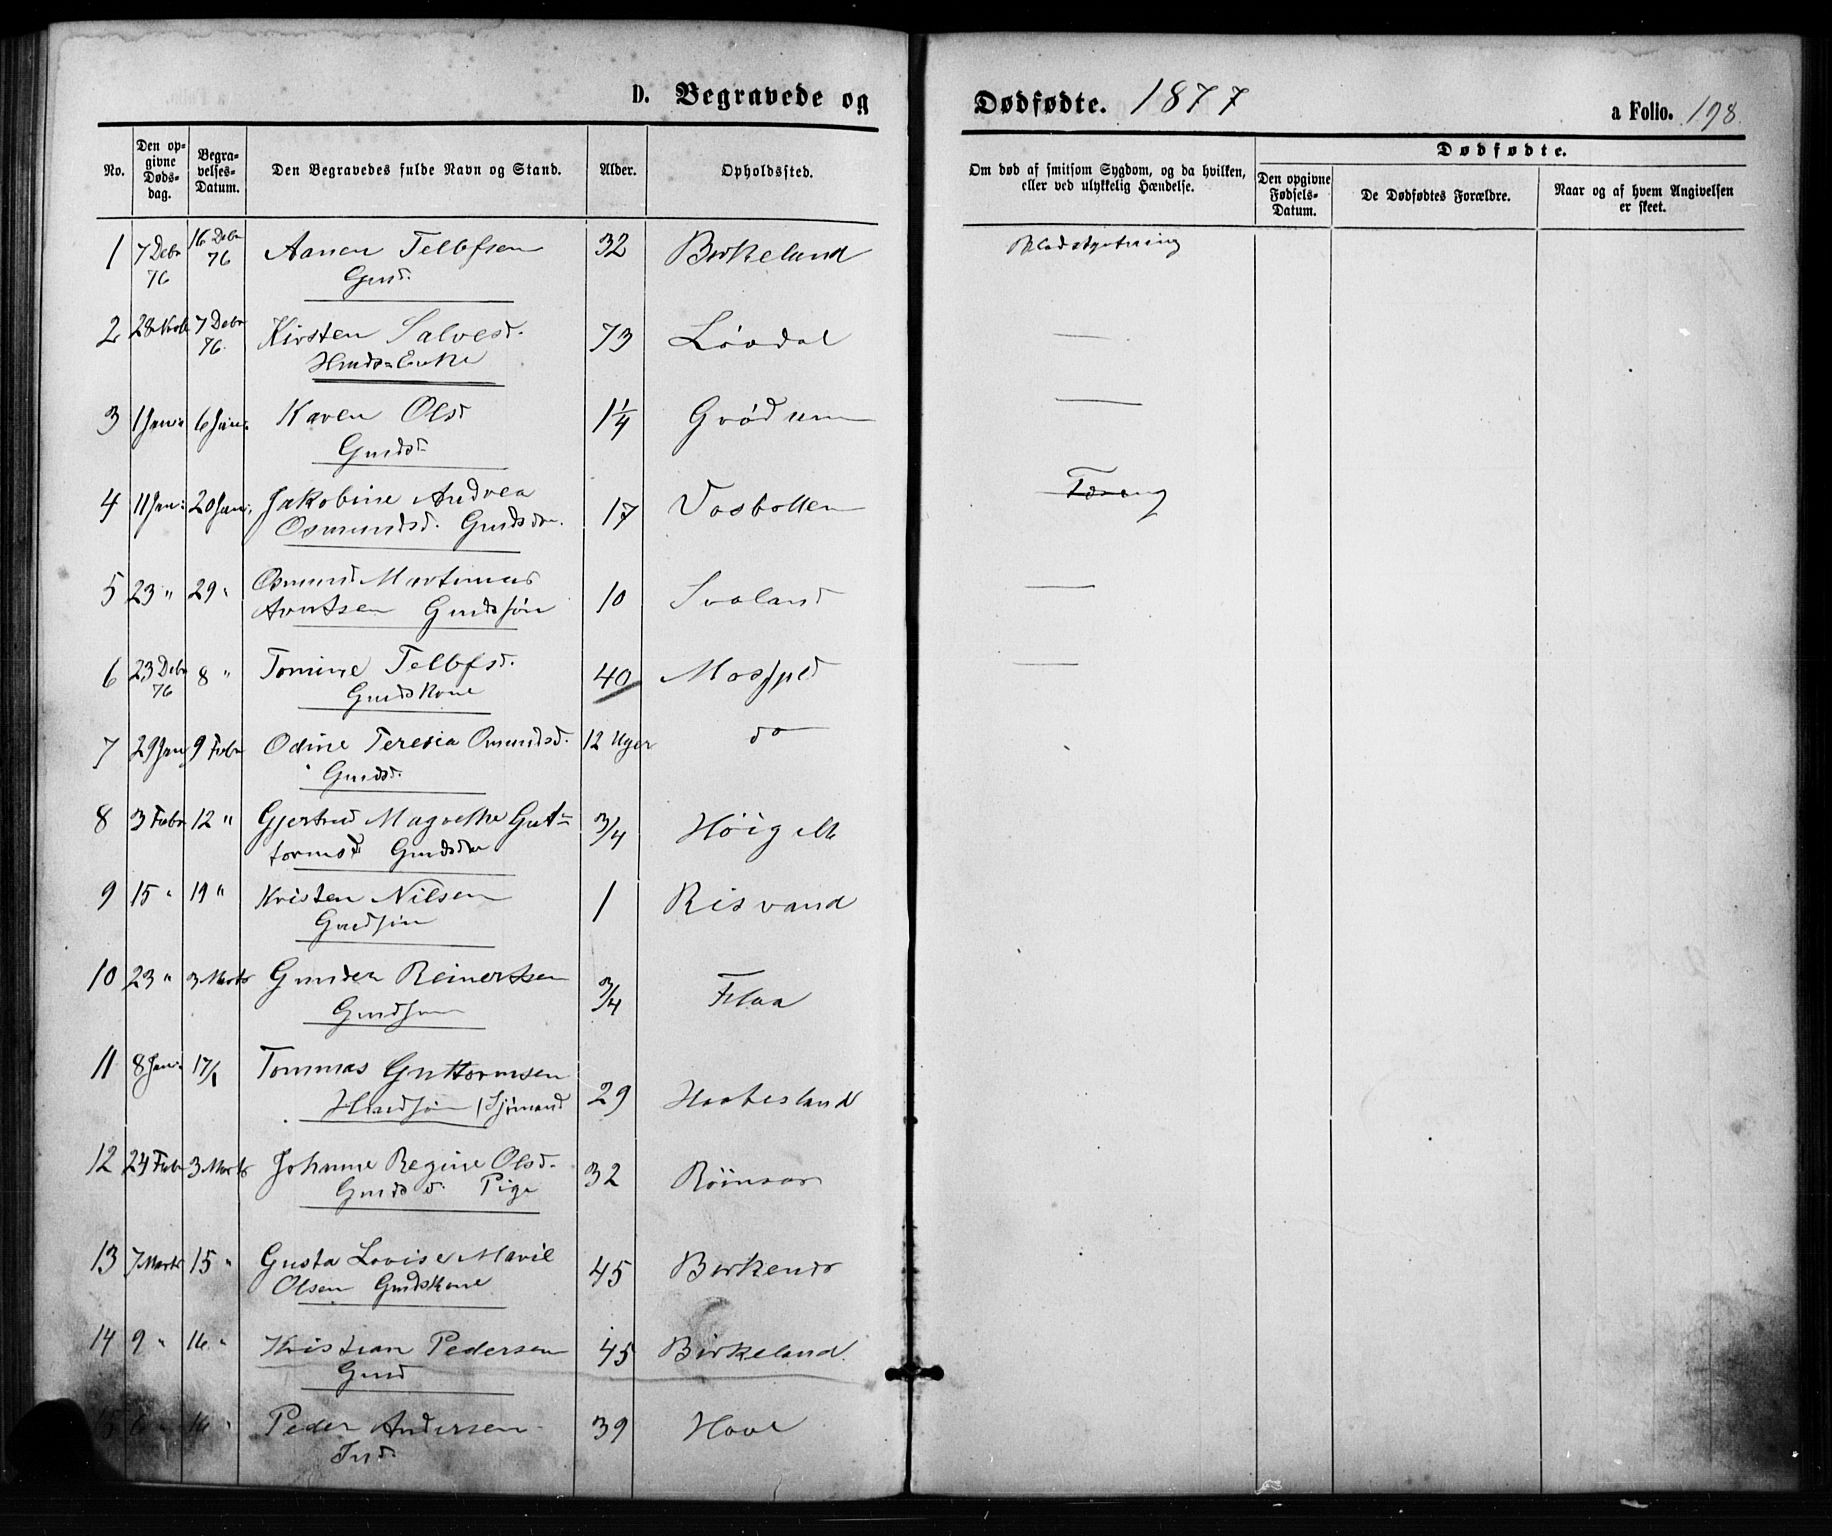 D. Begravede og Dødfødte. 1877 a Folio. 198.
No.
Den opgivne Dødsdag.
Begravelses-Datum.
Den Begravedes fulde Navn og Stand.
Alder.
Opholdssted.
Om død af smitsom Sygdom, og da hvilken, eller ved ulykkelig Hændelse.
Dødfødte.
Den opgivne Fødsels-Datum.
De Dødfødtes Forældre.
Naar og af hvem Angivelsen er skeet.
1 7 Debr 76 16 Debr 76 Aanen Tellefsen 32 Birkeland
Gmd.
2 28 Novb 7 Debr 76. Kirsten Salvesd. 73 Løvdal
Hmds Enke
3 1 Janu 6 Janu. Karen Olsd 1¼ Grødum
Gmdsd
4 11 Jan: 20 Jan. Jakobine Andrea 17 Vasbotten Tæring
Osmundsd. Gmdsdr.
5 23 " 29 " Osmund Martinius 10 Svaland
Gmdssøn
6 23 Debr 76 8 " Tomine Tellefsd. 40
Gmdskone
7 29 Jan 9 Febr Odine Teresia Omundsd. 12 Uger do
Gmdsd.
8 3 Febr 12 " Gjertrud Magrethe Gut- 3/4
tormsd Gmdsdr
9 15 " 19 " Kristen Nilsen 1 Risvand
Gmdsøn
10 23 " 3 Marts Gunder Reinertsen 3/4 Flaa
Gmdsøn
11 8 Jan. 17/1 Tommas Guttormsen
Hmdsøn / Sjømand 29 Haabesland
12 24 Febr 3 Marts Johanne Regine Olsd. 32
Gmdsd. Pige
13 7 Marts 15 " Gusta Lovise Marie 45 Birkenes
Olsen Gmdskone
14 9 " 16 " Kristian Pedersen 45 Birkeland.
Gmd
15 6 " 16 " Peder Andersen 39 Hove